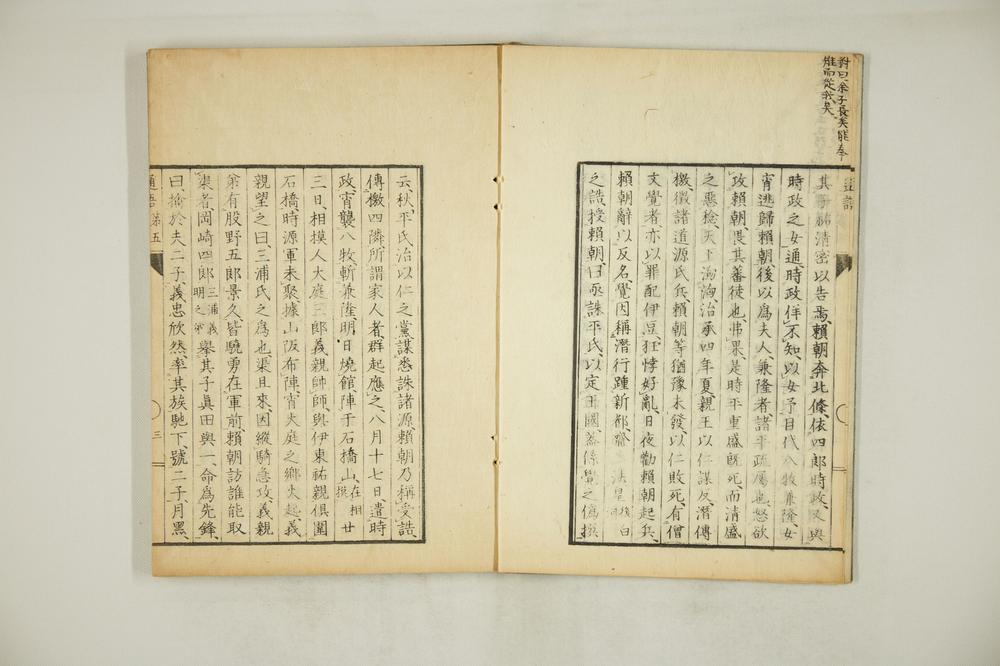 對曰余子長矣能奉
雎而從我矣
其子祐清密以告焉賴朝奔北條依四郎時政又與
時政之女通時政佯不知以女予目代八牧兼隆女
宵逃歸賴朝後以爲夫人兼隆者諸平疏屬也怒欲
攻賴朝畏其蕃徒也弗果是時平重盛既死而清盛
之惡稔天下洶洶治承四年夏親王以仁謀反潛傳
檄徵諸道源氏兵賴朝等猶豫未發以仁敗死有僧
文覺者亦以罪配伊豆狂悖好亂日夜勸賴朝起兵
賴朝辭以反名覺因稱潛行踵新都 法皇 白
之誥授賴朝曰亟誅平氏以定王國蓋係覺之僞撰
云秋平氏治以仁之黨謀悉誅諸源賴朝乃稱受誥
傳檄四隣所謂家人者群起應之八月十七日遣時
政宵襲八牧斬兼隆明日燒館陣于石橋山在相模廿
三日相摸人大庭三郎義親帥師與伊東祐親俱圍
石橋時源軍未聚據山阪布陣宵大庭之鄉火起義
親望之曰三浦氏之爲也渠且來因縱騎急攻義親
弟有股野五郎景久皆驍勇在軍前賴朝訪誰能取
渠者岡崎四郎三浦義明之弟舉其子眞田與一命爲先鋒
曰搶於夫二子義忠欣然率其族馳下號二子月黑
通語 第五
三
通語